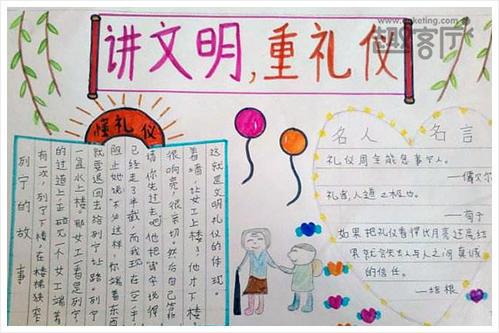 讲文明,重礼仪
趣客厅
懂礼仪
列宁的故事
有次,列宁下楼,在楼梯狭窄
的过道上,正碰见一个女工端着
一盆水上楼。那女工一看是列宁,
就要退回去给列宁让路。列宁
阻止她说:"不必这样,你端着东西
已经走了半截,而我现在空手,
请你先过去吧!"他把"请"字说得
很响亮,很亲切。然后自己紧
靠着墙,让女工上楼了,他才下楼。
这就是文明礼仪的体现。
名人 名言
礼仪周全能息事宁人。
——儒贝尔
礼者,人道之极也。
——荀子
如果把礼仪看得比月亮还高结
果就会失去人与人之间真诚
的信任。
——培根